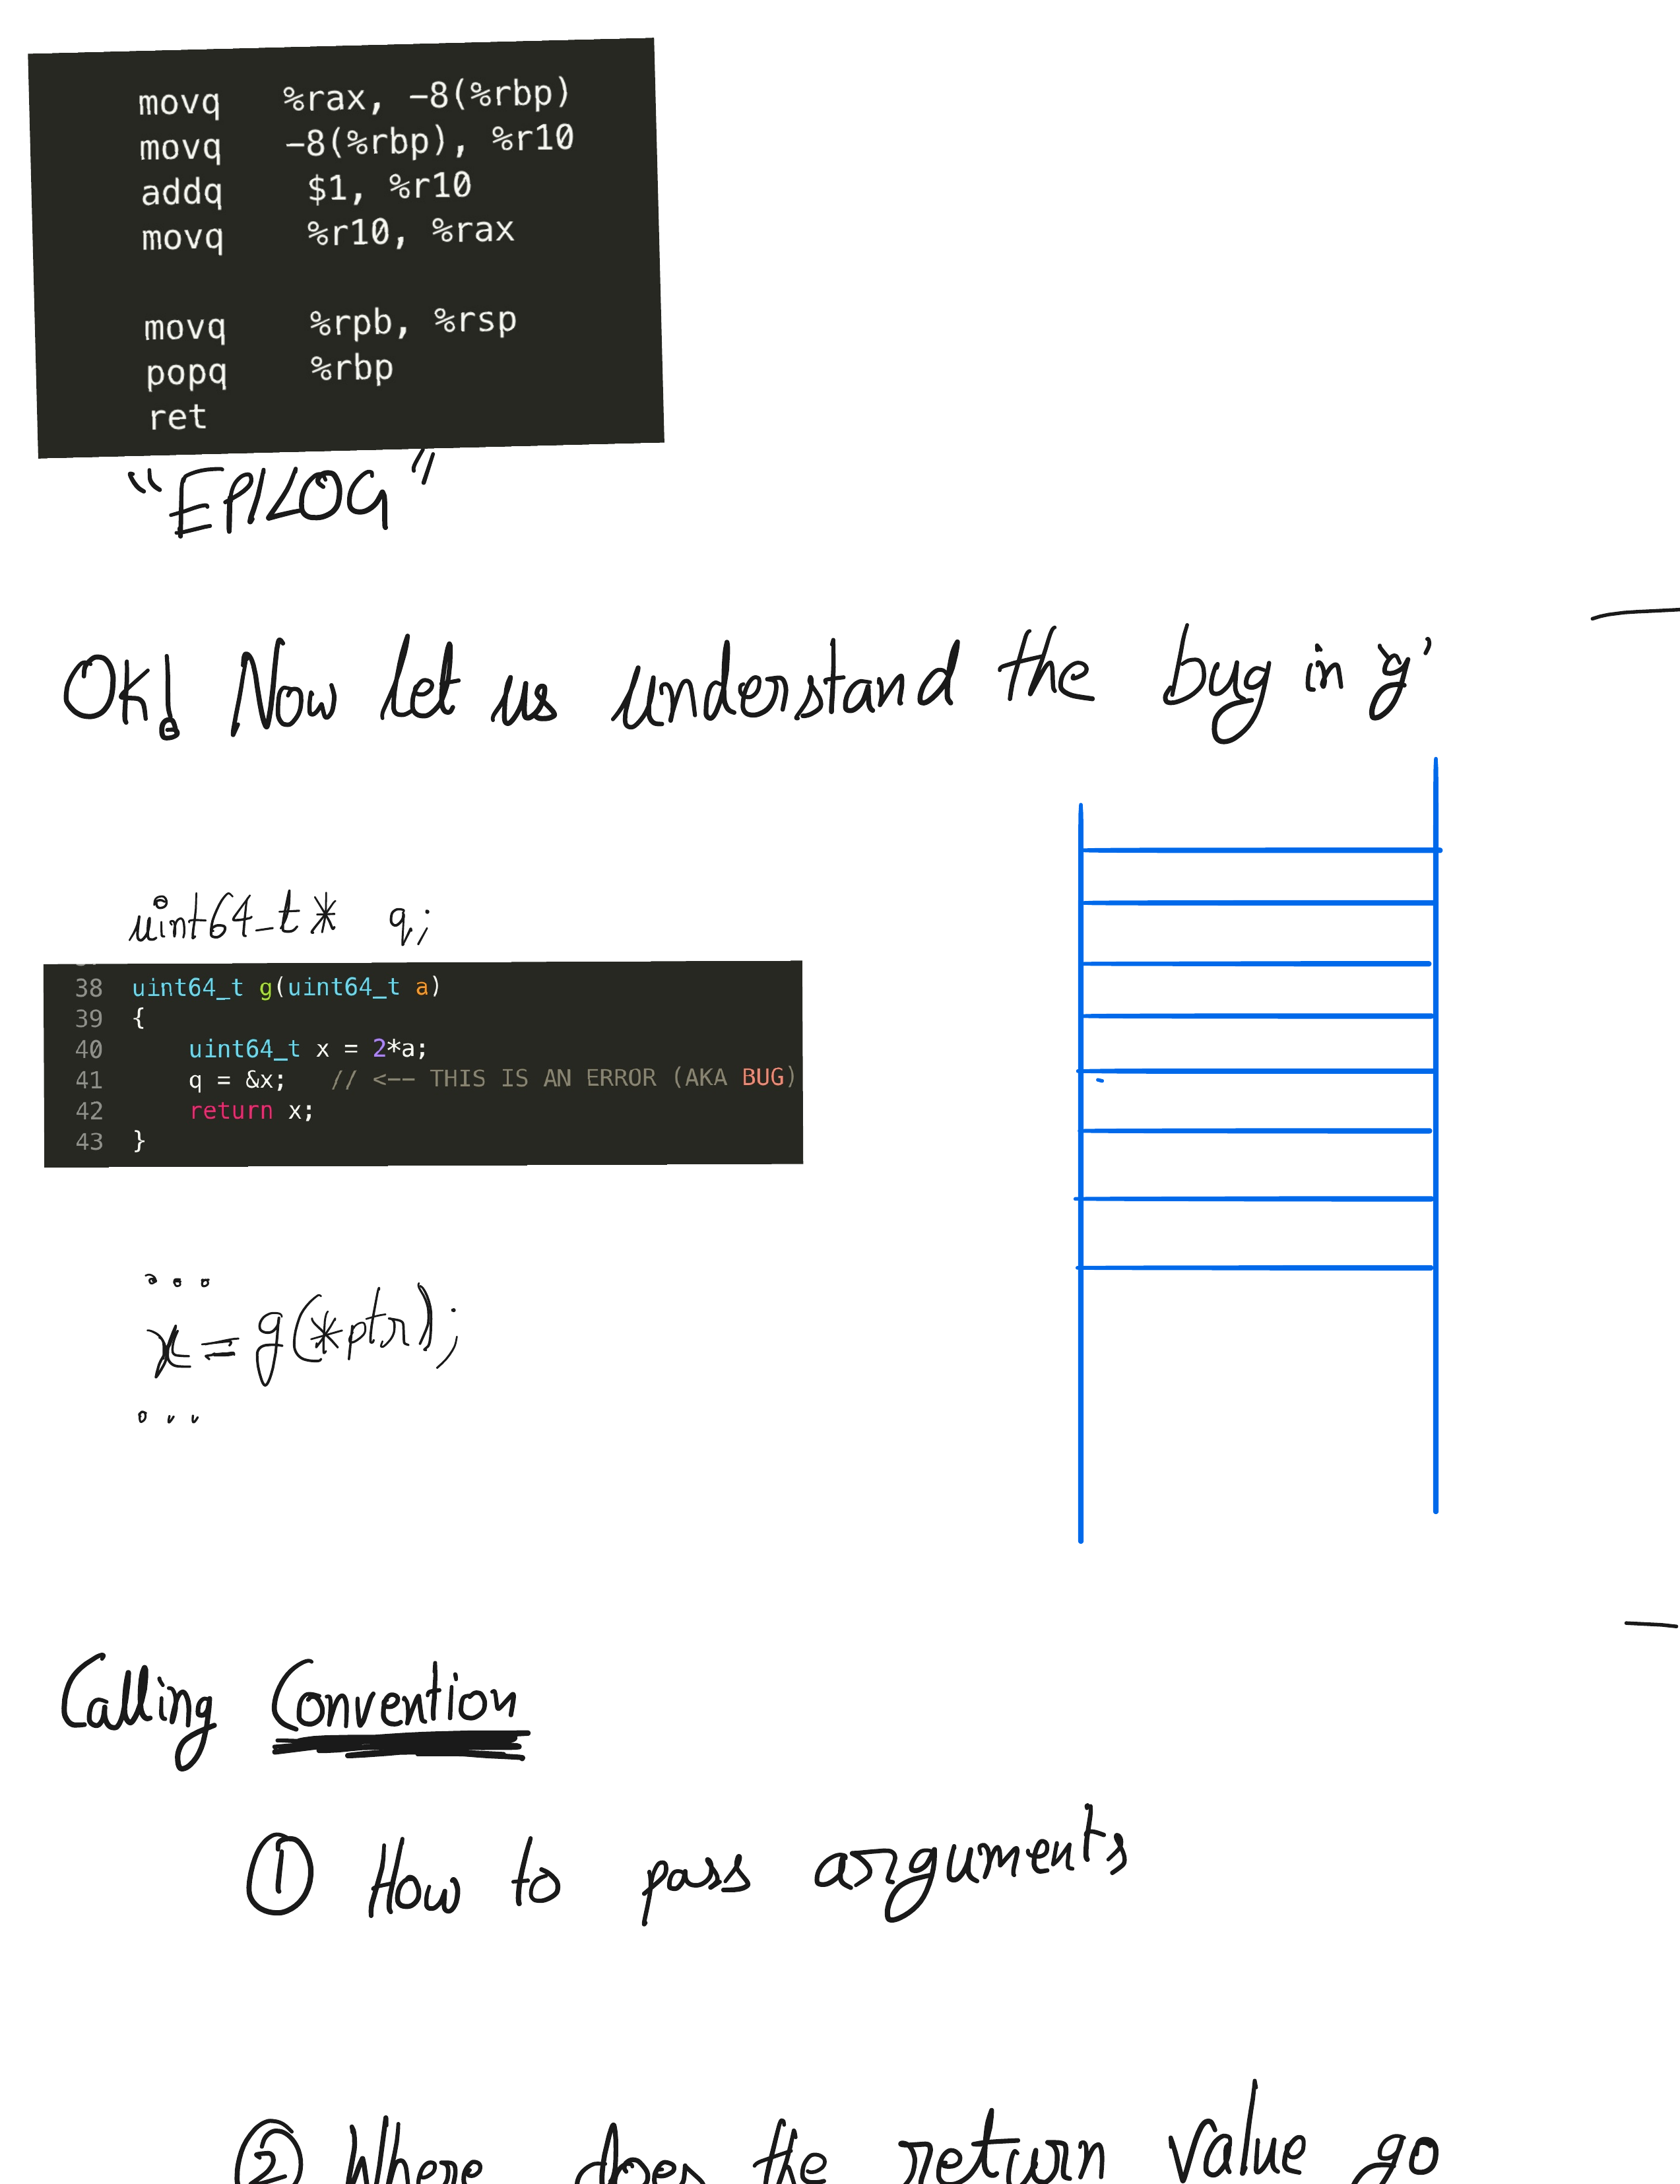 movq %rax, -8(%rbp)
movq -8(%rbp), %r10
addq $1, %r10
movq %r10, %rax
movq %rpb, %rsp
popq %rbp
ret
"EPILOG"
OK! Now let us understand the bug in 'g'
uint64_t* q;
38 uint64_t g(uint64_t a)
39 {
40 uint64_t x = 2*a;
41 q = &x; // <-- THIS IS AN ERROR (AKA BUG)
42 return x;
43 }
...
x = g(*ptr);
...
Calling Convention
① How to pass arguments
② Where does the return value go